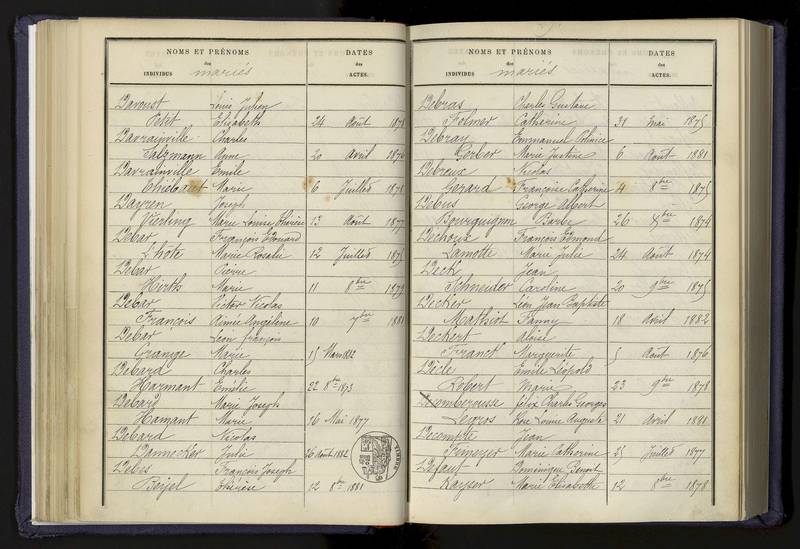 NOMS ET PRÉNOMS DATES
des des
INDIVIDUS mariés ACTES.
Davoust Louis Julien
Petit Elisabeth 24 Août 1878
Davrainville Charles
Salzmann Anne 20 Avril 1876
Davrainville Emile
Thiébaut Marie 6 Juillet 1878
Dayren Joseph
Vierling Marie Louise Thérèse 13 Août 1877
Debar François Edouard
L'hôte Marie Rosalie 12 Juillet 1875
Debar Pierre
Hirth Marie 11 8bre 1879
Debar Victor Nicolas
François Aimée Angéline 10 7bre 1881
Debar Léon François
Grange Marie 15 Mars 1882
Debard Charles
Harmant Emélie 22 8bre 1873
Debard Marie Joseph
Hamant Marie 26 Mai 1877
Debard Nicolas
Dannecker Julie 26 Août 1882
Debes François Joseph
Beijel Thérèse 12 8bre 1881
NOMS ET PRÉNOMS DATES
des des
INDIVIDUS mariés ACTES.
Debras Charles Gustave
Folmer Catherine 31 Mai 1875
Debray Emmanuel
Gerber Marie Justine 6 Août 1881
Debreux Nicolas
Gérard Françoise Catherine 4 8bre 1875
Debus George Albert
Bourguignon Barbe 26 Xbre 1874
Dechoux François Edmond
Lamotte Marie Julie 24 Août 1874
Deck Jean
Schneider Caroline 20 9bre 1875
Decker Léon Jean Baptiste
Mathiot Fanny 18 Avril 1882
Deckert Aloise
Franck Marguerite 5 Août 1876
Dècle Emile Léopold
Robert Marie 23 9bre 1878
Félix Charles Georges
Legros Rose Louise Augusta 21 Avril 1881
Decompte Jean
Marie Catherine 25 Juillet 1877
Defaut Dominique Benoit
Kayser Marie Elisabeth 12 8bre 1878
TIMBRE